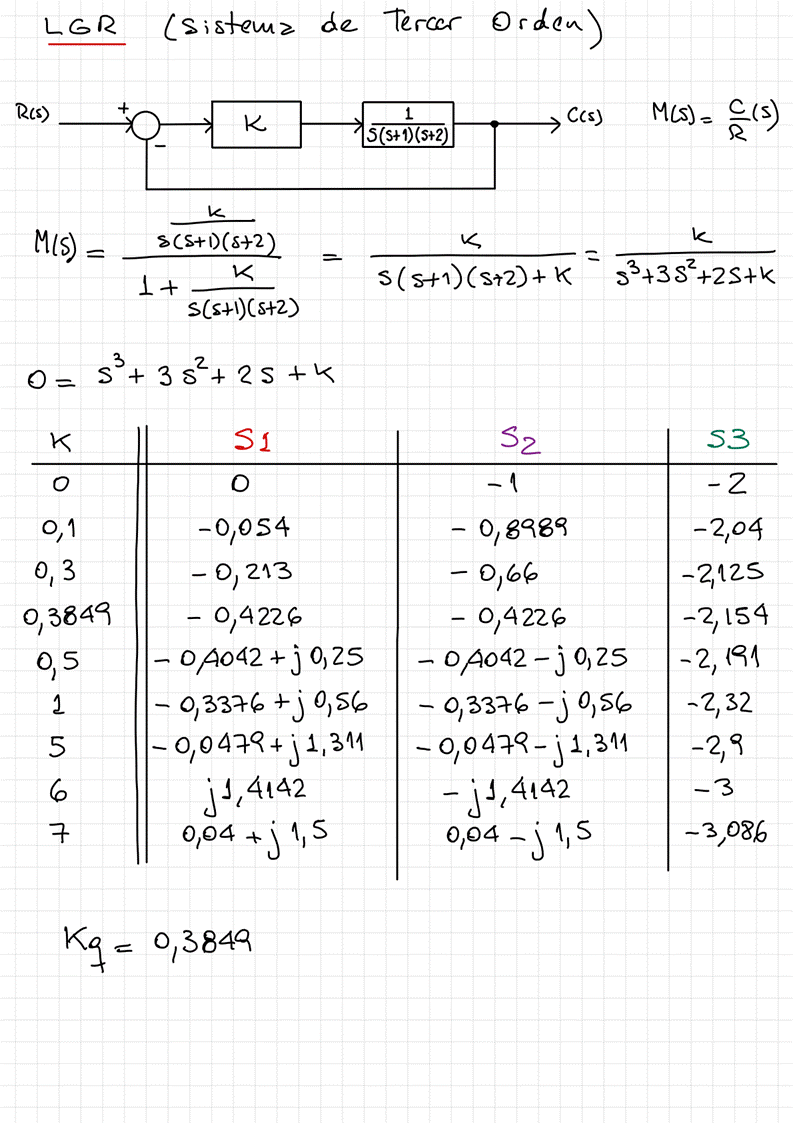 LGR (Sistema de Tercer Orden)
R(s) + - K 1/(S(S+1)(S+2)) C(s) M(s) = C/R (s)
M(s) = (K/(S(S+1)(S+2)))/(1 + K/(S(S+1)(S+2))) = K/(S(S+1)(S+2)+K) = K/(S³+3S²+2S+K)
0 = S³ + 3S² + 2S + K
K S1 S2 S3
0 0 -1 -2
0,1 -0,054 -0,8989 -2,04
0,3 -0,213 -0,66 -2,125
0,3849 -0,4226 -0,4226 -2,154
0,5 -0,4042+j0,25 -0,4042-j0,25 -2,191
1 -0,3376+j0,56 -0,3376-j0,56 -2,32
5 -0,0479+j1,311 -0,0479-j1,311 -2,9
6 j1,4142 -j1,4142 -3
7 0,04+j1,5 0,04-j1,5 -3,086
Kq = 0,3849